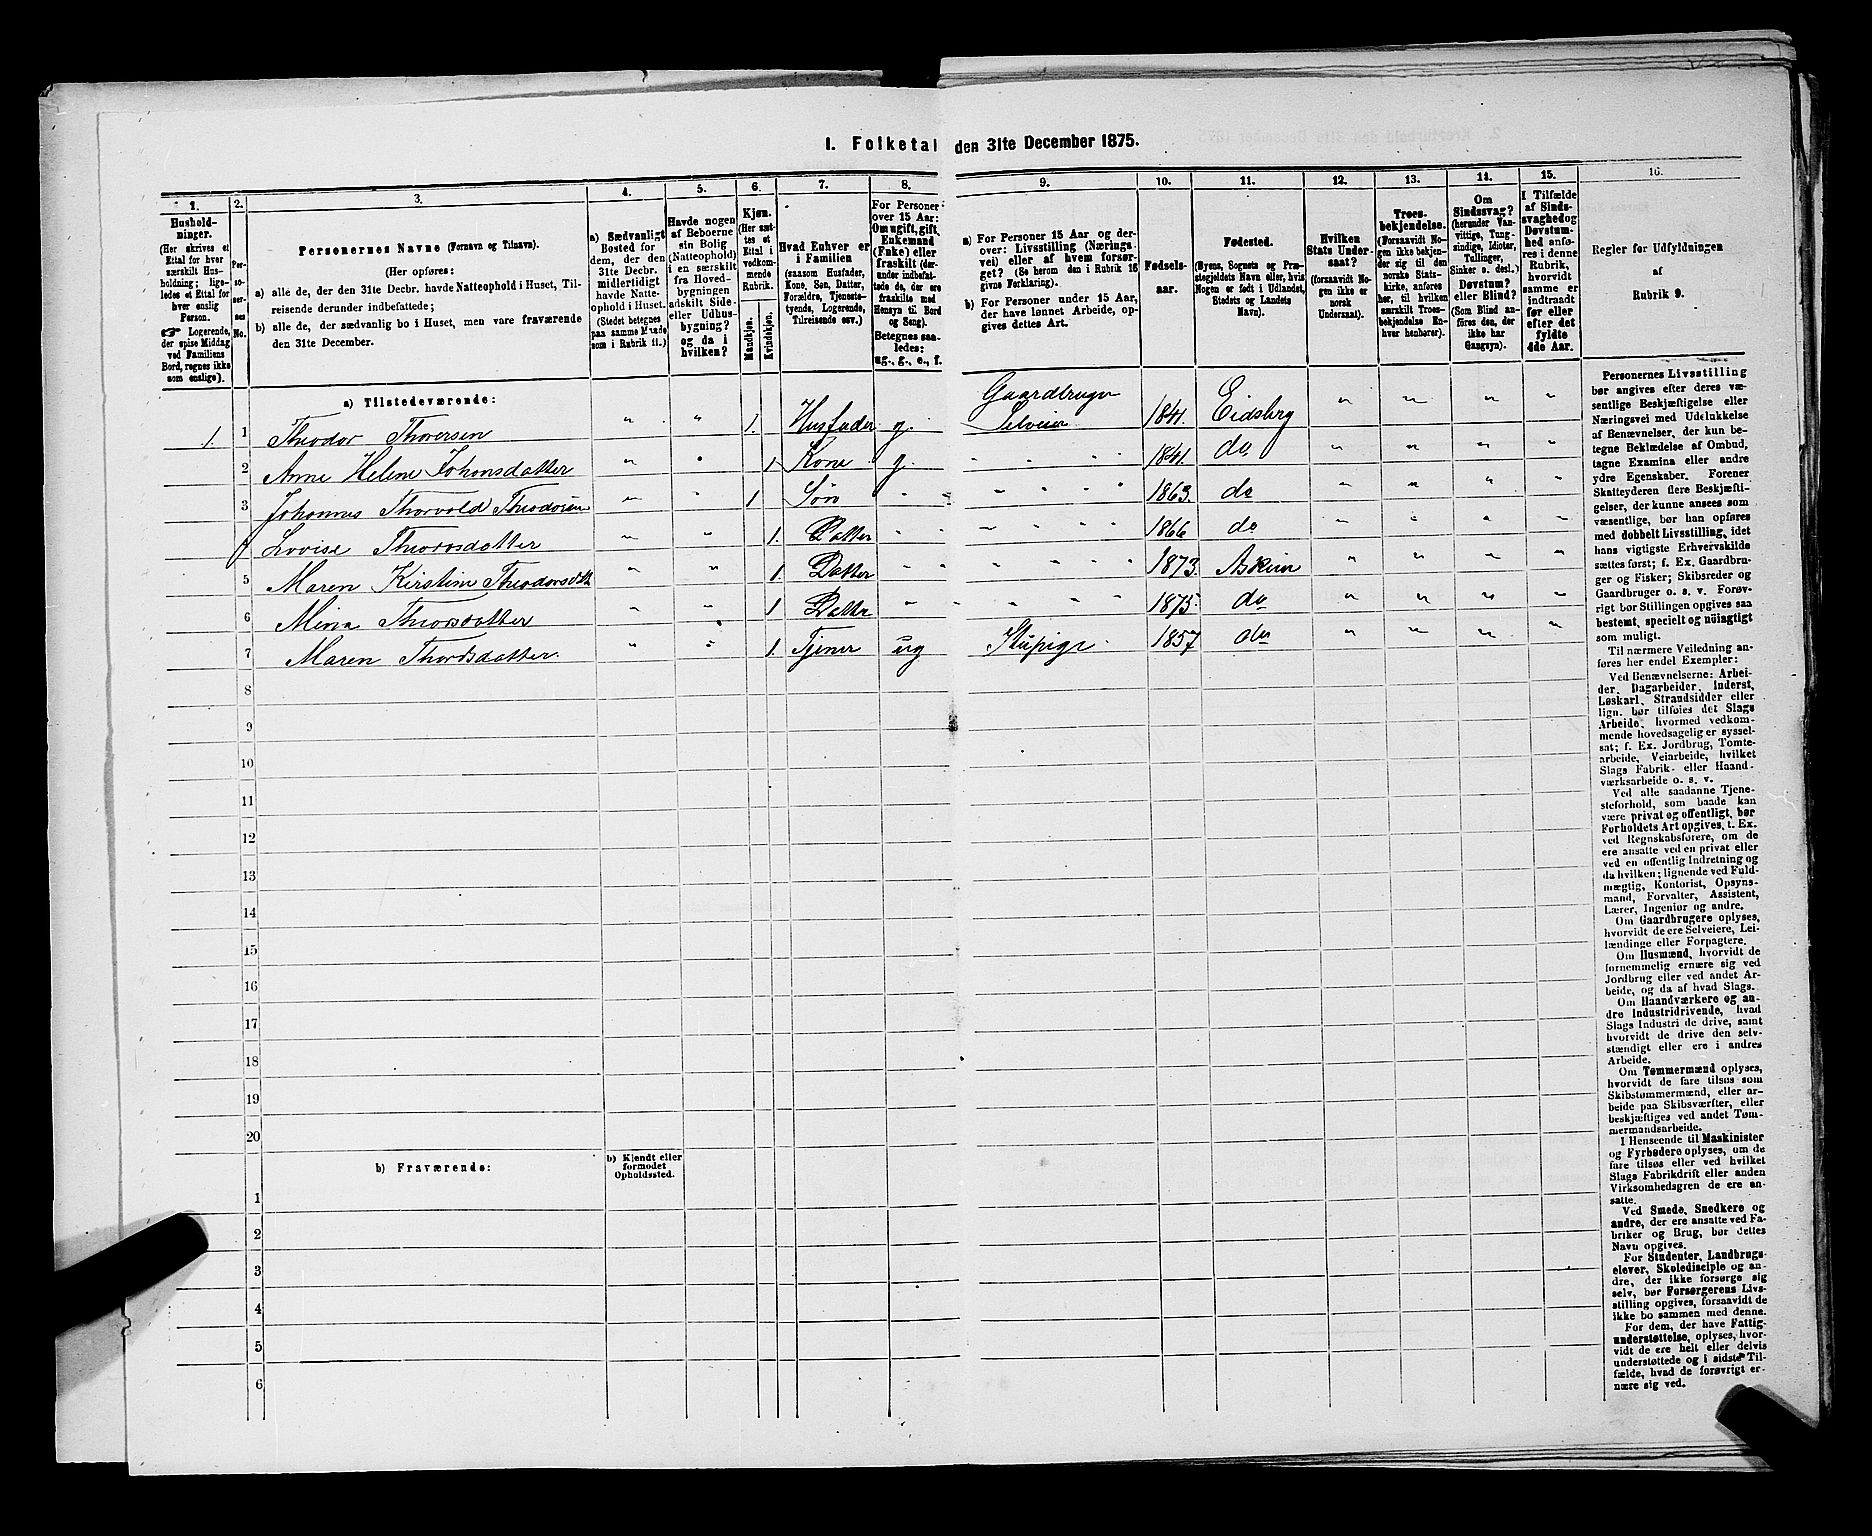 1. Folketal den 31te December 1875.
1. 2. 3. 4. 5. 6. 7. 8. 9. 10. 11. 12. 13. 14. 15. 16.
Husholdninger.
(Her skrives et
Ettal for hver
særskilt Husholdning;
ligeledes et Ettal for
hver enslig
Person.
☛ Logerende,
der spise Middag
ved Familiens
Bord, regnes ikke
som enslige).
Personernes No.
Personernes Navne (Fornavn og Tilnavn).
(Her opføres:
a) alle de, der den 31te Decbr. havde Natteophold i Huset, Tilreisende derunder indbefattede;
b) alle de, der sædvanlig bo i Huset, men vare fraværende
den 31te December.
a) Sædvanligt
Bosted for
dem, der den
31te Decbr.
midlertidigt
havde Natteophold i Huset.
(Stedet betegnes
paa samme Maade
som i Rubrik 11.)
Havde nogen
af Beboerne
sin Bolig
(Natteophold)
i en særskilt
fra Hovedbygningen
adskilt Side-
eller Udhusbygning?
og da i
hvilken?
Kjøn.
(Her sættes et
Ettal i
vedkommende
Rubrik.
Mandkjøn.
Kvindekjøn.
Hvad Enhver er
i Familien
(saasom Husfader,
Kone, Søn, Datter,
Forældre, Tjenestetyende, Logerende,
Tilreisende osv.)
For Personer
over 15 Aar:
Om ugift, gift,
Enkemand
(Enke) eller
fraskilt (derunder indbefattede de, der ere
fraskilte med
Hensyn til Bord
og Seng).
Betegnes saaledes:
ug., g., e., f.
a) For Personer 15 Aar og derover: Livsstilling (Næringsvei) eller af hvem forsørget? (Se herom den i Rubrik 16
givne Forklaring).
b) For Personer under 15 Aar,
der have lønnet Arbeide, opgives dettes Art.
Fødselsaar.
Fødested.
(Byens, Sognets og Præstegjeldets Navn eller, hvis
Nogen er født i Udlandet,
Stedets og Landets
Navn).
Hvilken
Stats Undersaat?
(forsaavidt Nogen ikke er
norsk
Undersaat).
Troesbekjendelse.
(Forsaavidt Nogen ikke bekjender sig til den
norske Statskirke, anføres
her, til hvilken
særskilt Troesbekjendelse Enhver henhører).
Om
Sindssvag?
(herunder Vanvittige, Tungsindige, Idioter,
Tullinger,
Sinker o. desl.)
Døvstum?
eller Blind?
(Som Blind anføres den, der
ikke har
Gangsyn).
I Tilfælde
af Sindssvaghed og
Døvstumhed anføres i denne
Rubrik,
hvorvidt
samme er
indtraadt
før eller
efter det
fyldte
4de Aar.
Regler for Udfyldningen
af
Rubrik 9.
a) Tilstedeværende:
1. 1 Theodor Thoresen " " 1. Husfader g. Gaardbruger Selveier 1841. Eidsberg " " " "
2 Anne Helene Johansdatter " " 1 Kone g. " " " " 1841. do " " " "
3 Johannes Thorvald Theodorsen " " 1 Søn " " " " " " 1863. do " " " "
4 Lovise Theorsdatter " " 1. Datter " " " " " " 1866 do " " " "
5 Maren Kirstine Theodorsdt " " 1. Datter " " " " " " 1873. Askim " " " "
6 Mina Theorsdatter " " 1 Datter " " " " " 1875. do " " " "
7 Maren Thordsdatter. " " 1. Tjener ug 1857 do " " " "
8
9
10
11
12
13
14
15
16
17
18
19
20
b) Fraværende:
b) Kjendt eller
formodet
Opholdssted.
1
2
3
4
5
6
Personernes Livsstilling
bør angives efter deres væsentlige Beskjæftigelse eller
Næringsvei med Udelukkelse
af Benævnelser, der kun betegne Beklædelse af Ombud,
tagne Examina eller andre
ydre Egenskaber. Forener
Skatteyderen flere Beskjæftigelser, der kunne ansees som
væsentlige, bør han opføres
med dobbelt Livsstilling, idet
hans vigtigste Erhvervskilde
sættes først; f. Ex. Gaardbruger og Fisker; Skibsreder og
Gaardbruger o. s. v. Forøvrigt bør Stillingen opgives saa
bestemt, specielt og nøiagtigt
som muligt.
Til nærmere Veiledning anføres her endel Exempler:
Ved Benævnelserne: Arbeider, Dagarbeider, Inderst,
Løskarl, Strandsidder eller
lign. bør tilføies det Slags
Arbeide, hvormed vedkommende hovedsagelig er sysselsat; f. Ex. Jordbrug, Tomtearbeide, Veiarbeide, hvilket
Slags Fabrik- eller Haandværksarbeide o. s. v.
Ved alle saadanne Tjenesteforhold, som baade kan
være privat og offentligt, bør
Forholdets Art opgives, t. Ex.
ved Regnskabsførere, om de
ere ansatte ved en privat eller
ved en offentlig Indretning og
da hvilken; lignende ved Fuldmægtig, Kontorist, Opsynsmand, Forvalter, Assistent,
Lærer, Ingeniør og andre.
Om Gaardbrugere oplyses,
hvorvidt de ere Selveiere, Leilændinge eller Forpagtere.
Om Husmænd, hvorvidt de
fornemmelig ernære sig ved
Jordbrug eller ved andet Arbeide, og da af hvad Slags.
Om Haandværkere og andre Industridrivende, hvad
Slags Industri de drive, samt
hvorvidt de drive den selvstændigt eller ere i andres
Arbeide.
Om Tømmermænd oplyses,
hvorvidt de fare tilsøs som
Skibstømmermænd, eller arbeide paa Skibsværfter, eller
beskjæftiges ved andet Tømmermandsarbeide.
I Henseende til Maskinister
og Fyrbødere oplyses, om de
fare tilsøs eller ved hvilket
Slags Fabrikdrift eller anden
Virksomhedsgren de ere ansatte.
Ved Smede, Snedkere og
andre, der ere ansatte ved Fabriker og Brug, bør dettes
Navn opgives.
For Studenter, Landbrugselever, Skoledisciple og andre, der ikke forsørge sig
selv, bør Forsørgerens Livsstilling opgives, forsaavidt de
ikke bo sammen med denne.
For dem, der have Fattigunderstøttelse, oplyses, hvorvidt de ere helt eller delvis
understøttede og i sidste Tilfælde, hvad de forøvrigt ernære sig ved.